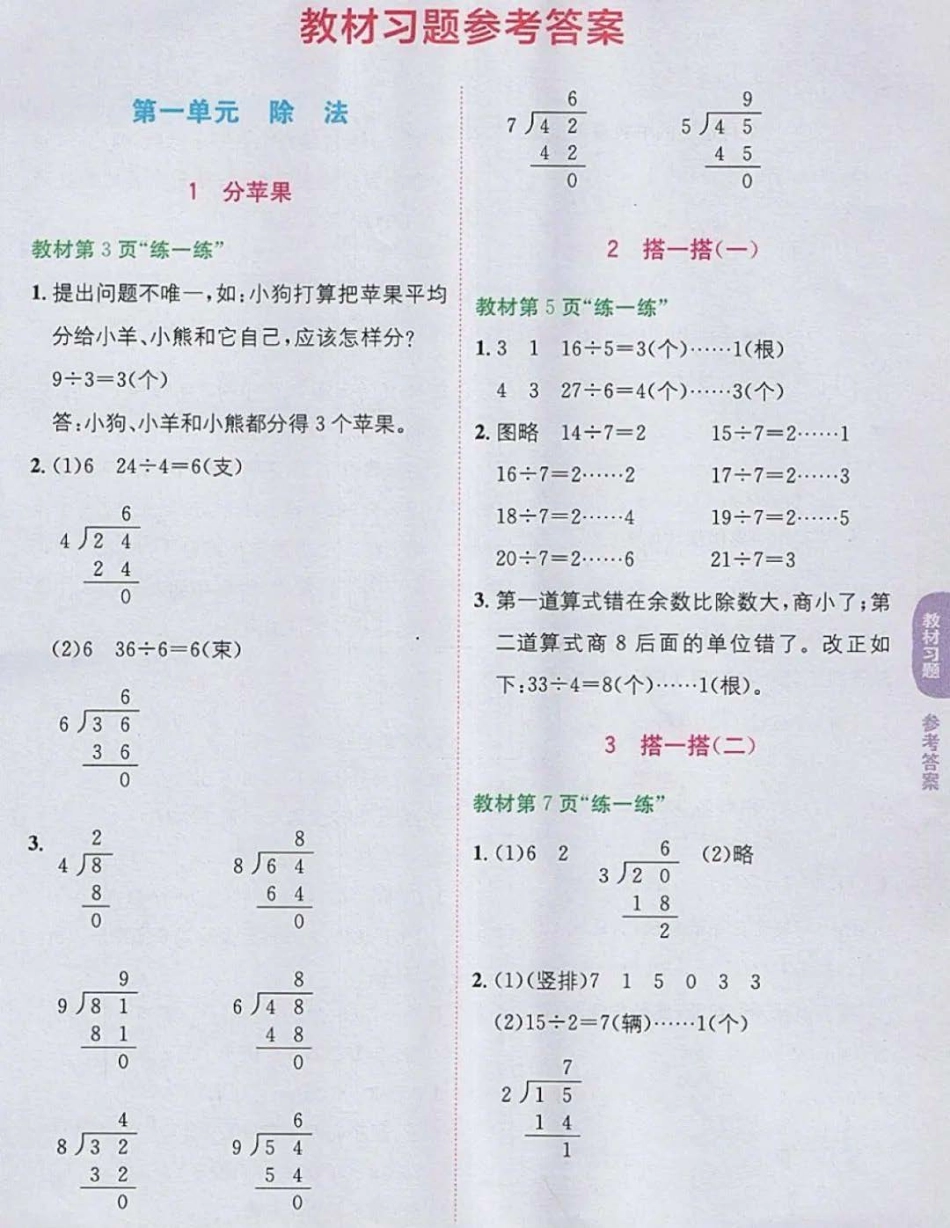 教材习题参考答案
第一单元 除 法
1 分苹果
教材第3页“练一练”
1. 提出问题不唯一,如:小狗打算把苹果平均
分给小羊、小熊和它自己,应该怎样分?
9÷3=3(个)
答:小狗、小羊和小熊都分得3个苹果。
2. (1)6 24÷4=6(支)
6
4 ⟌ 2 4
2 4
0
(2)6 36÷6=6(束)
6
6 ⟌ 3 6
3 6
0
3.
2
4 ⟌ 8
8
0
8
8 ⟌ 6 4
6 4
0
9
9 ⟌ 8 1
8 1
0
8
6 ⟌ 4 8
4 8
0
4
8 ⟌ 3 2
3 2
0
6
9 ⟌ 5 4
5 4
0
6
7 ⟌ 4 2
4 2
0
9
5 ⟌ 4 5
4 5
0
2 搭一搭(一)
教材第5页“练一练”
1. 3 1 16÷5=3(个)……1(根)
4 3 27÷6=4(个)……3(个)
2. 图略 14÷7=2 15÷7=2……1
16÷7=2……2 17÷7=2……3
18÷7=2……4 19÷7=2……5
20÷7=2……6 21÷7=3
3. 第一道算式错在余数比除数大,商小了;第
二道算式商8后面的单位错了。改正如
下:33÷4=8(个)……1(根)。
3 搭一搭(二)
教材第7页“练一练”
1. (1)6 2
6
3 ⟌ 2 0
1 8
2
(2)略
2. (1)(竖排)7 1 5 0 3 3
(2)15÷2=7(辆)……1(个)
7
2 ⟌ 1 5
1 4
1
教材习题
参考答案